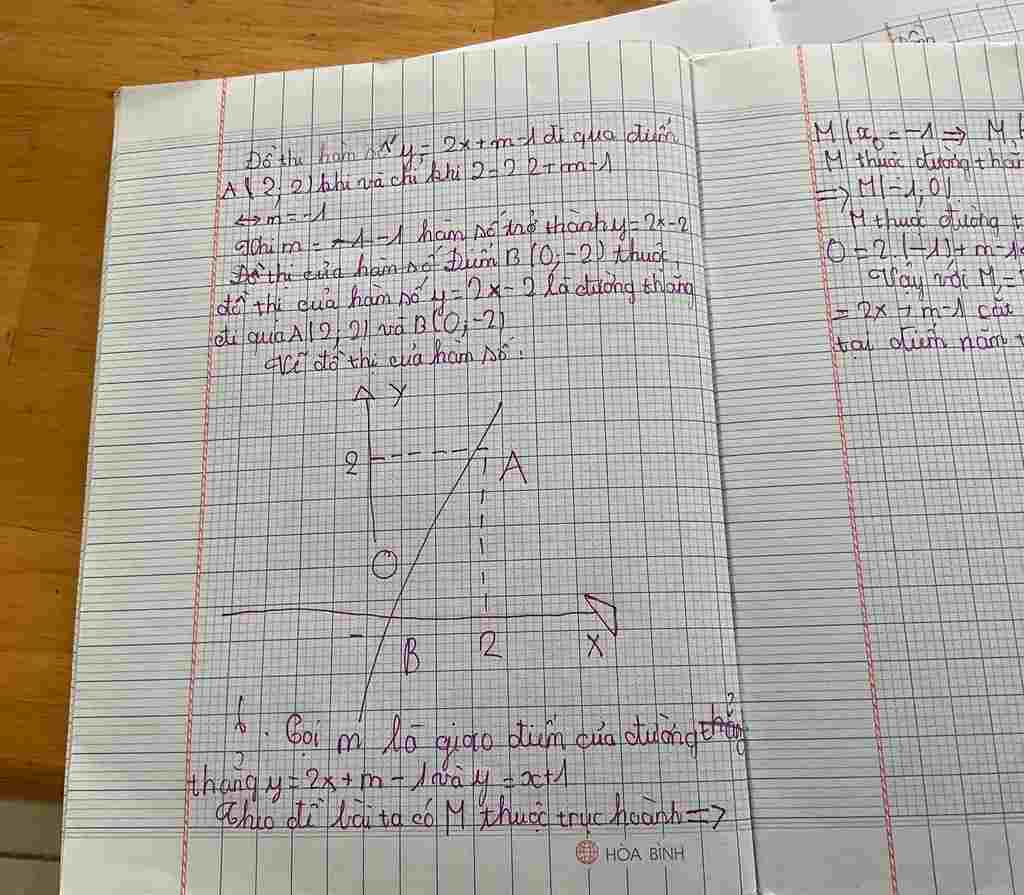 Đồ thị hàm số y = 2x + m - 1 đi qua điểm
A (2, 2) khi và chỉ khi 2 = 2 2 + m - 1
⇔ m = -1
Khi m = -1 - 1 hàm số trở thành y = 2x - 2
Đồ thị của hàm số Điểm B (0, -2) thuộc
đồ thị của hàm số y = 2x - 2 là đường thẳng
đi qua A (2, 2) và B (0, -2)
Vẽ đồ thị của hàm số:
Y
2
A
O
-
B
2
X
b. Gọi m là giao điểm của đường
thẳng y = 2x + m - 1 và y = x + 1
Theo đề bài ta có M thuộc trục hoành =>
HÒA BÌNH
M (x₀ = -1 => M
M thuộc đường
=> M (-1, 0)
M thuộc đường
0 = 2. (-1) + m - 1
Vậy với M =
= 2x + m - 1 cắt
tại điểm nằm